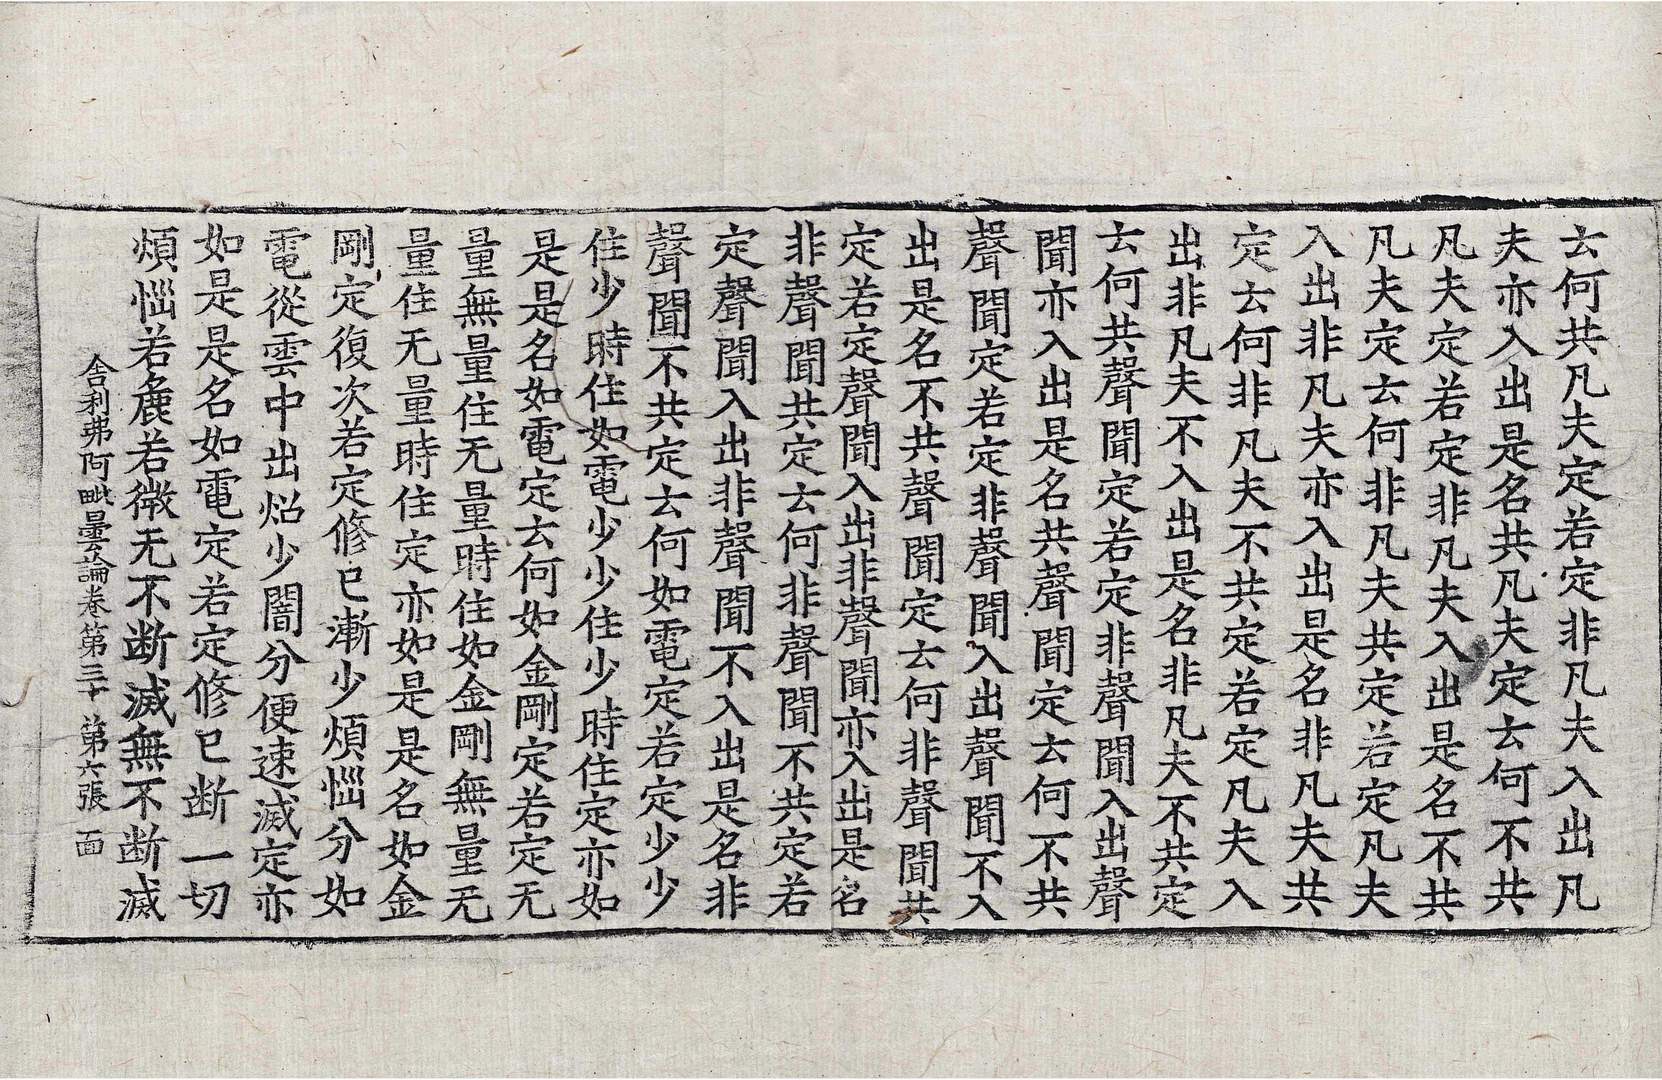 云何共凡夫定若定非凡夫入出凡
夫亦入出是名共凡夫定云何不共
凡夫定若定非凡夫入出是名不共
凡夫定云何非凡夫共定若定凡夫
入出非凡夫亦入出是名非凡夫共
定云何非凡夫不共定若定凡夫入
出非凡夫不入出是名非凡夫不共定
云何共聲聞定若定非聲聞入出聲
聞亦入出是名共聲聞定云何不共
聲聞定若定非聲聞入出聲聞不入
出是名不共聲聞定云何非聲聞共
定若定聲聞入出非聲聞亦入出是名
非聲聞共定云何非聲聞不共定若
定聲聞入出非聲聞不入出是名非
聲聞不共定云何如電定若定少少
住少時住如電少少住少時住定亦如
是是名如電定云何如金剛定若定无
量無量住无量時住如金剛無量无
量住无量時住定亦如是是名如金
剛定復次若定修已漸少煩惱分如
電從雲中出炤少闇分便速滅定亦
如是是名如電定若定修已断一切
煩惱若麁若微无不断滅無不断滅
舍利弗阿毗曇論卷第三十 第六張 面